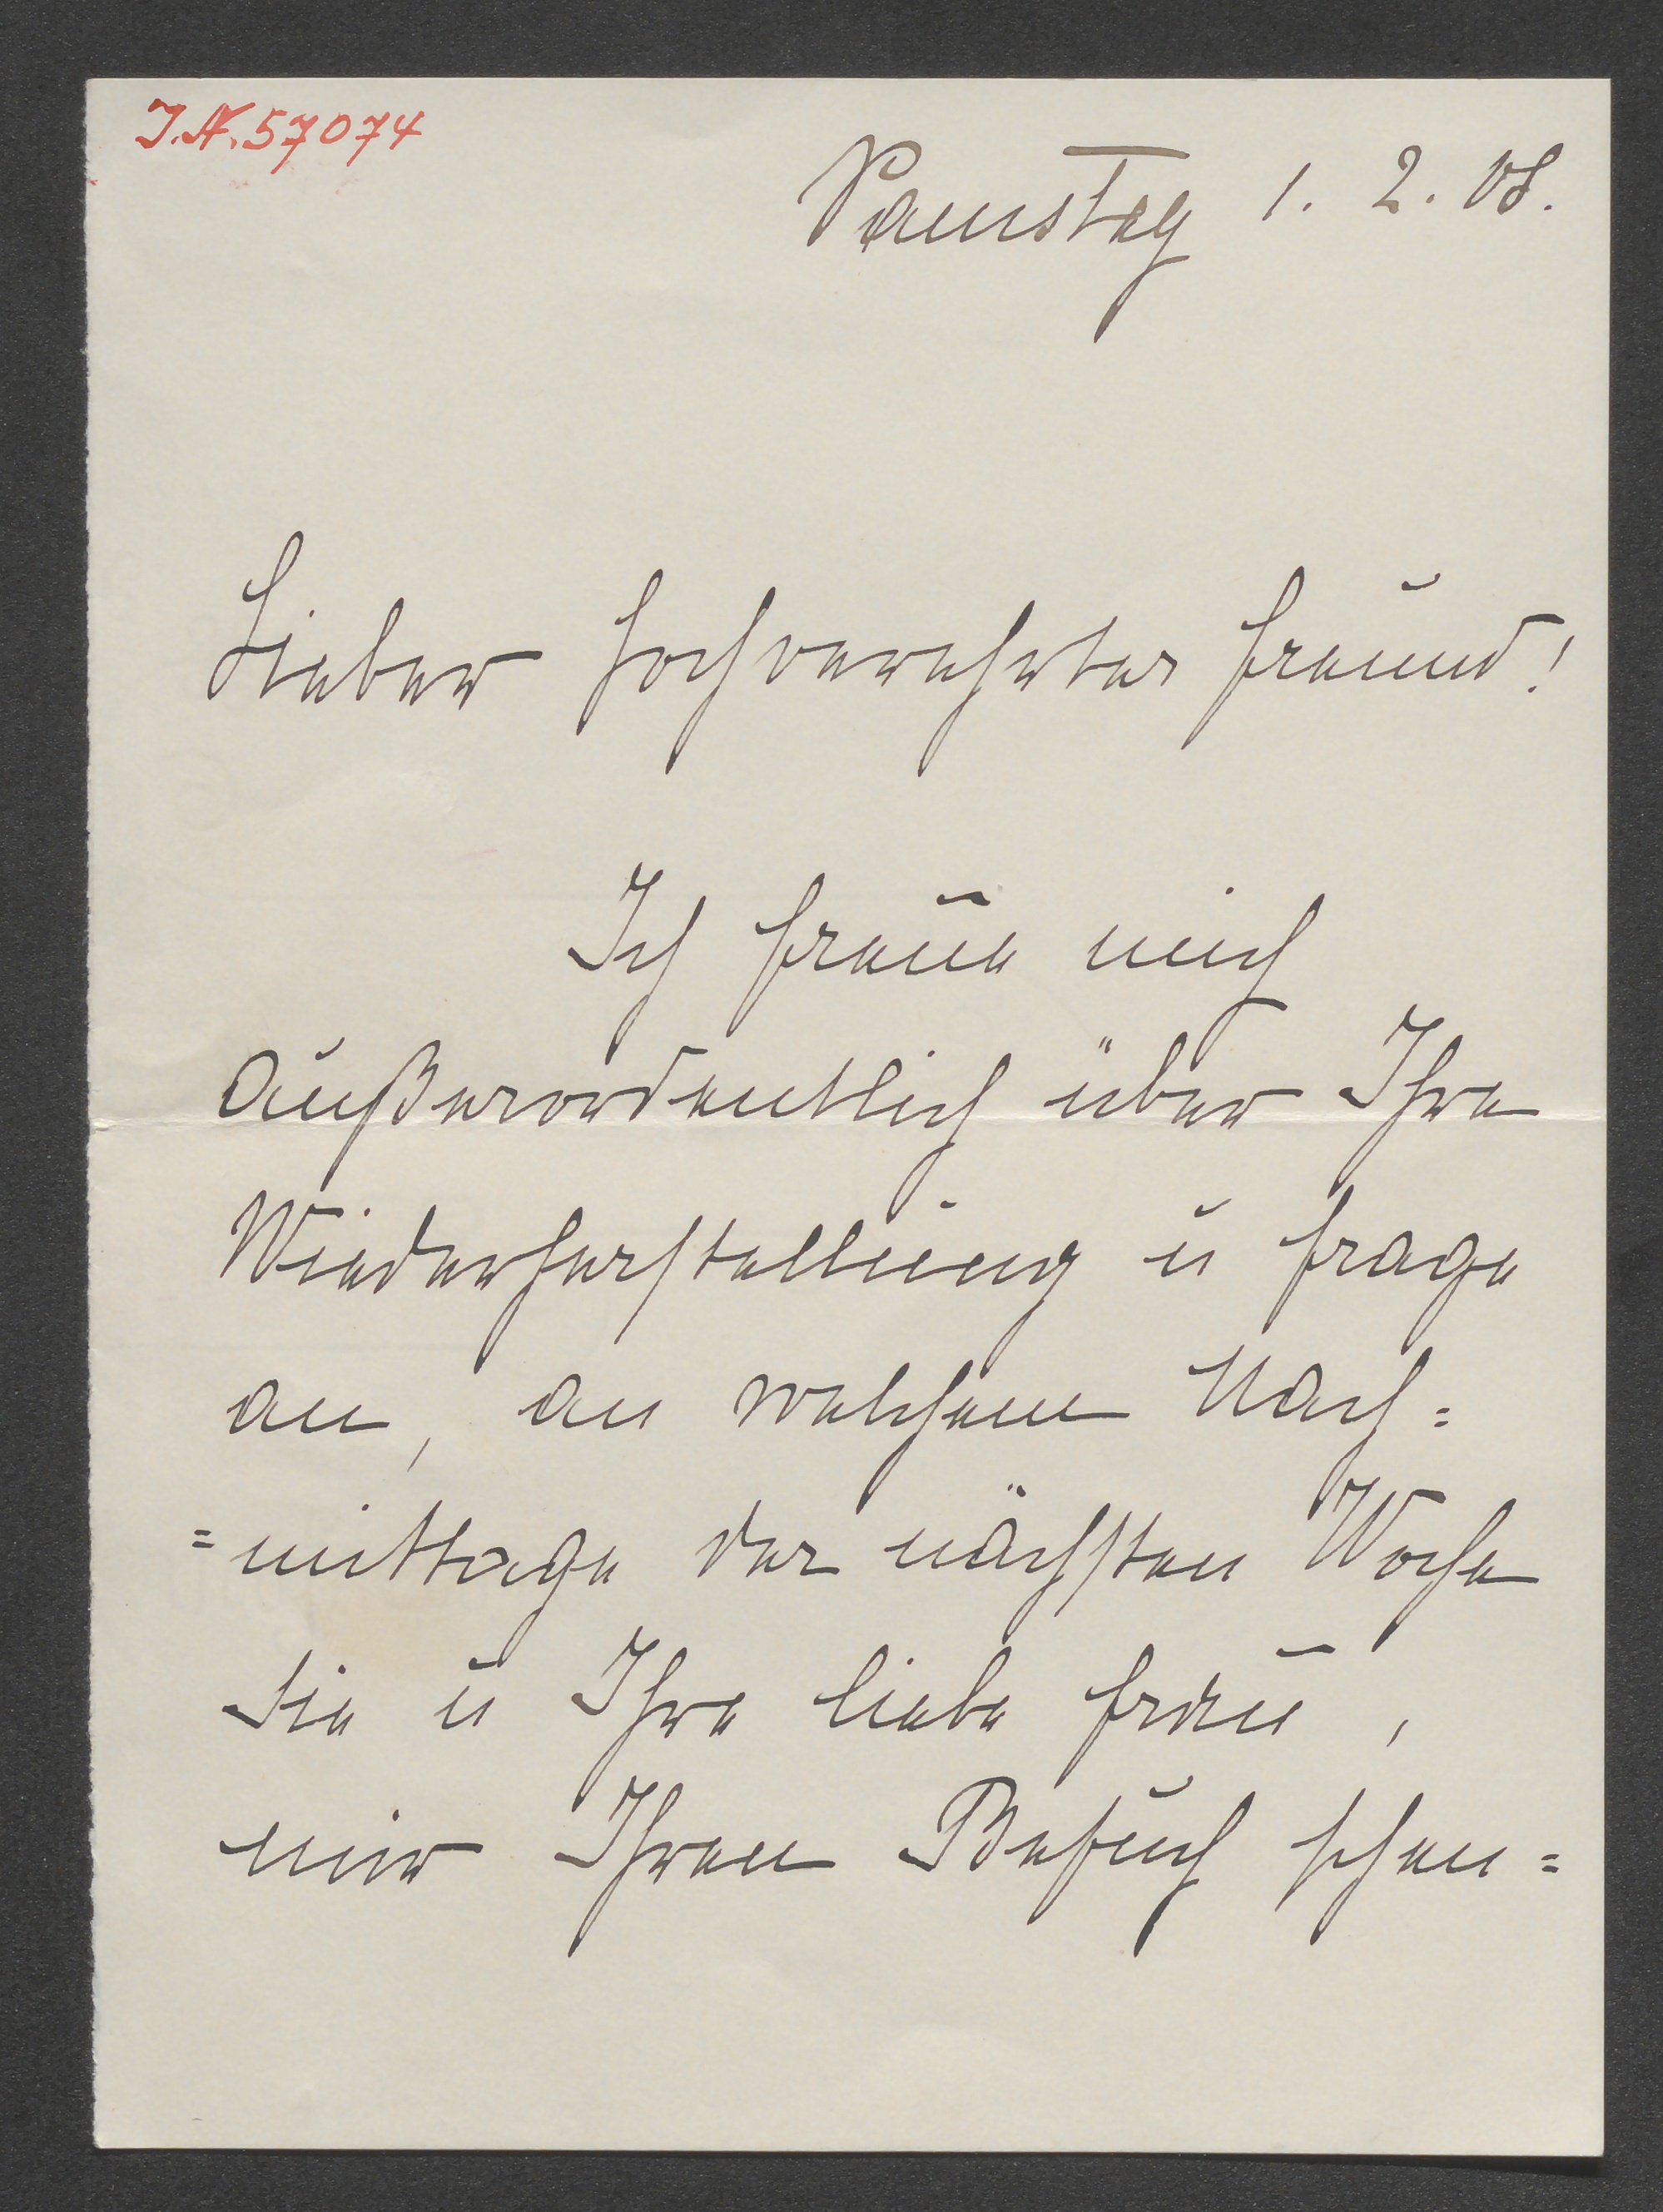 I.N. 57074
Samstag 1. 2. 08.
Lieber hochverehrter Freund!
Ich freue mich
außerordentlich über Ihre
Wiederherstellung u frage
an, an welchem Nach=
=mittage der nächsten Woche
Sie u Ihre liebe Frau,
mir Ihren Besuch schen=